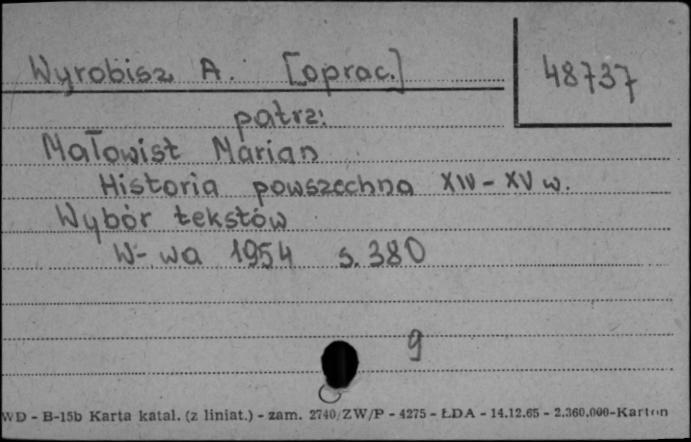 Wyrobisz A. [oprac.]
48737
patrz:
Małowist Marian
Historia powszechna XIV - XV w.
Wybór tekstów
W-wa 1954 s. 380
9
WD - B-15b Karta katal. (z liniat.) - zam. 2740/ZW/P - 4275 - ŁDA - 14.12.65 - 2.360.000-Karton